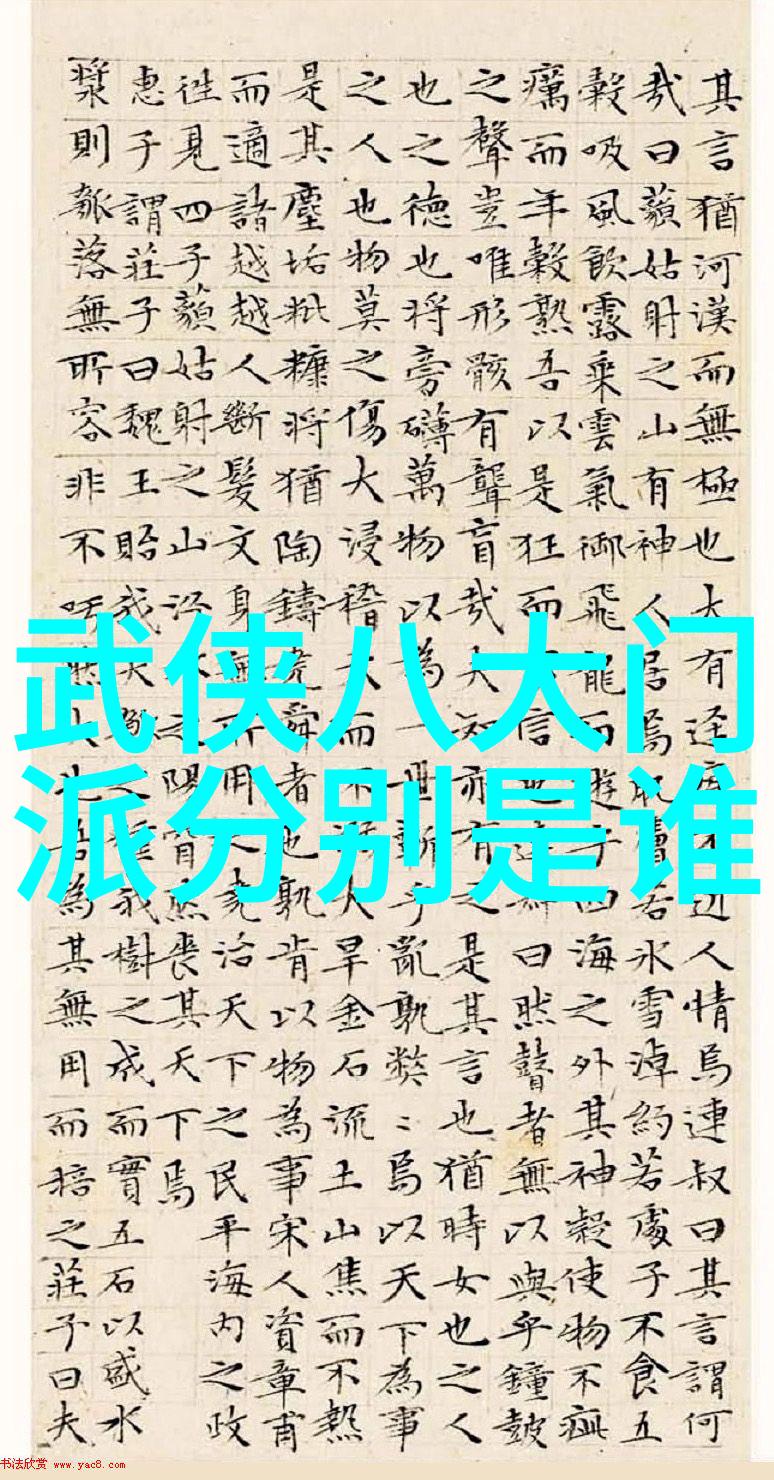 武侠八大门
派分别是谁
其言猶河漢而無極也大有逕近人情焉連叔曰其言謂何
哉曰藐姑射之山有神人居焉肌膚若冰雪淖約若處子不食五
穀吸風飲露乘雲氣御飛龍而遊乎四海之外其神凝使物不疵
癘而年穀熟吾以是狂而信也連叔曰然瞽者無以與乎鐘鼓
之聲豈唯形骸有聾盲哉夫知亦有之是其言也猶時女也之人
也之德也將旁礴萬物以為一世蘄乎亂孰弊〻焉以天下為事
之人也物莫之傷大浸稽天而不溺大旱金石流土山焦而不熱
是其塵垢粃糠將猶陶鑄堯舜者也孰肯以物為事宋人資章甫
而適諸越越人斷髮文身無所用之堯治天下之民平海内之政
往見四子藐姑射之山汾水之陽窅然喪其天下焉
惠子謂莊子曰魏王貽我大瓠之種我樹之成而實五石以盛水
漿則瓠落無所容非不呺然大也吾為其無用而掊之莊子曰夫
书法欣赏 www.yac8.com